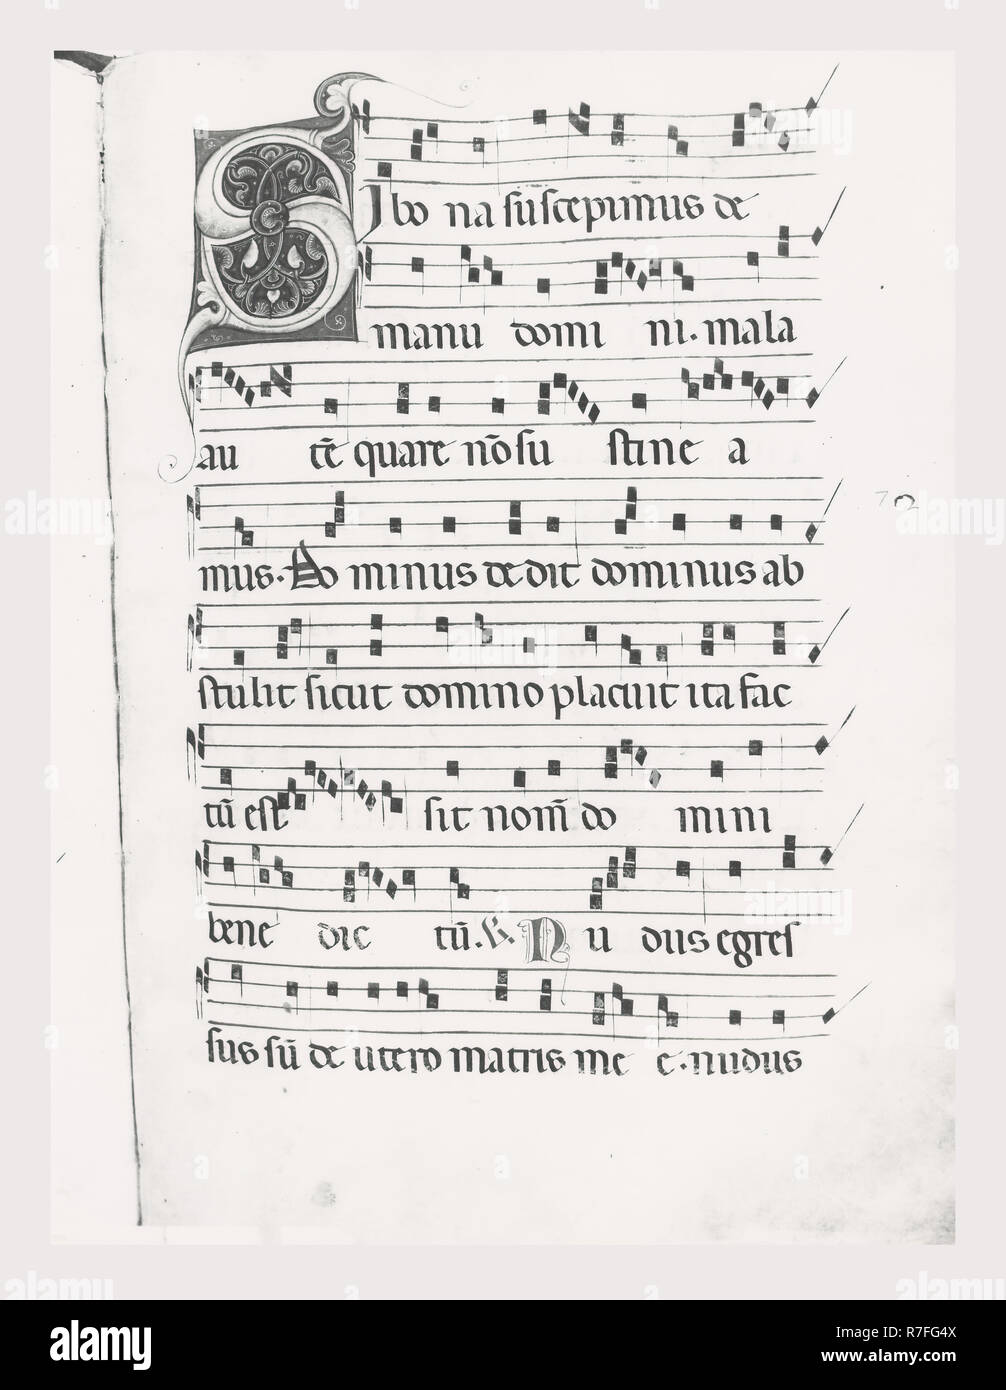 SI bo na suscepimus de
manu domi ni. mala
au tē quare nōsu stine a
mus. Do minus dedit dominus ab
stulit sicut domino placuit ita fac
tū est sit nom̄ do mini
bene dic tū. V. Nu dus egres
sus sū de utero matris me e. nudus
72
alamy
Image ID: R7FG4X
www.alamy.com